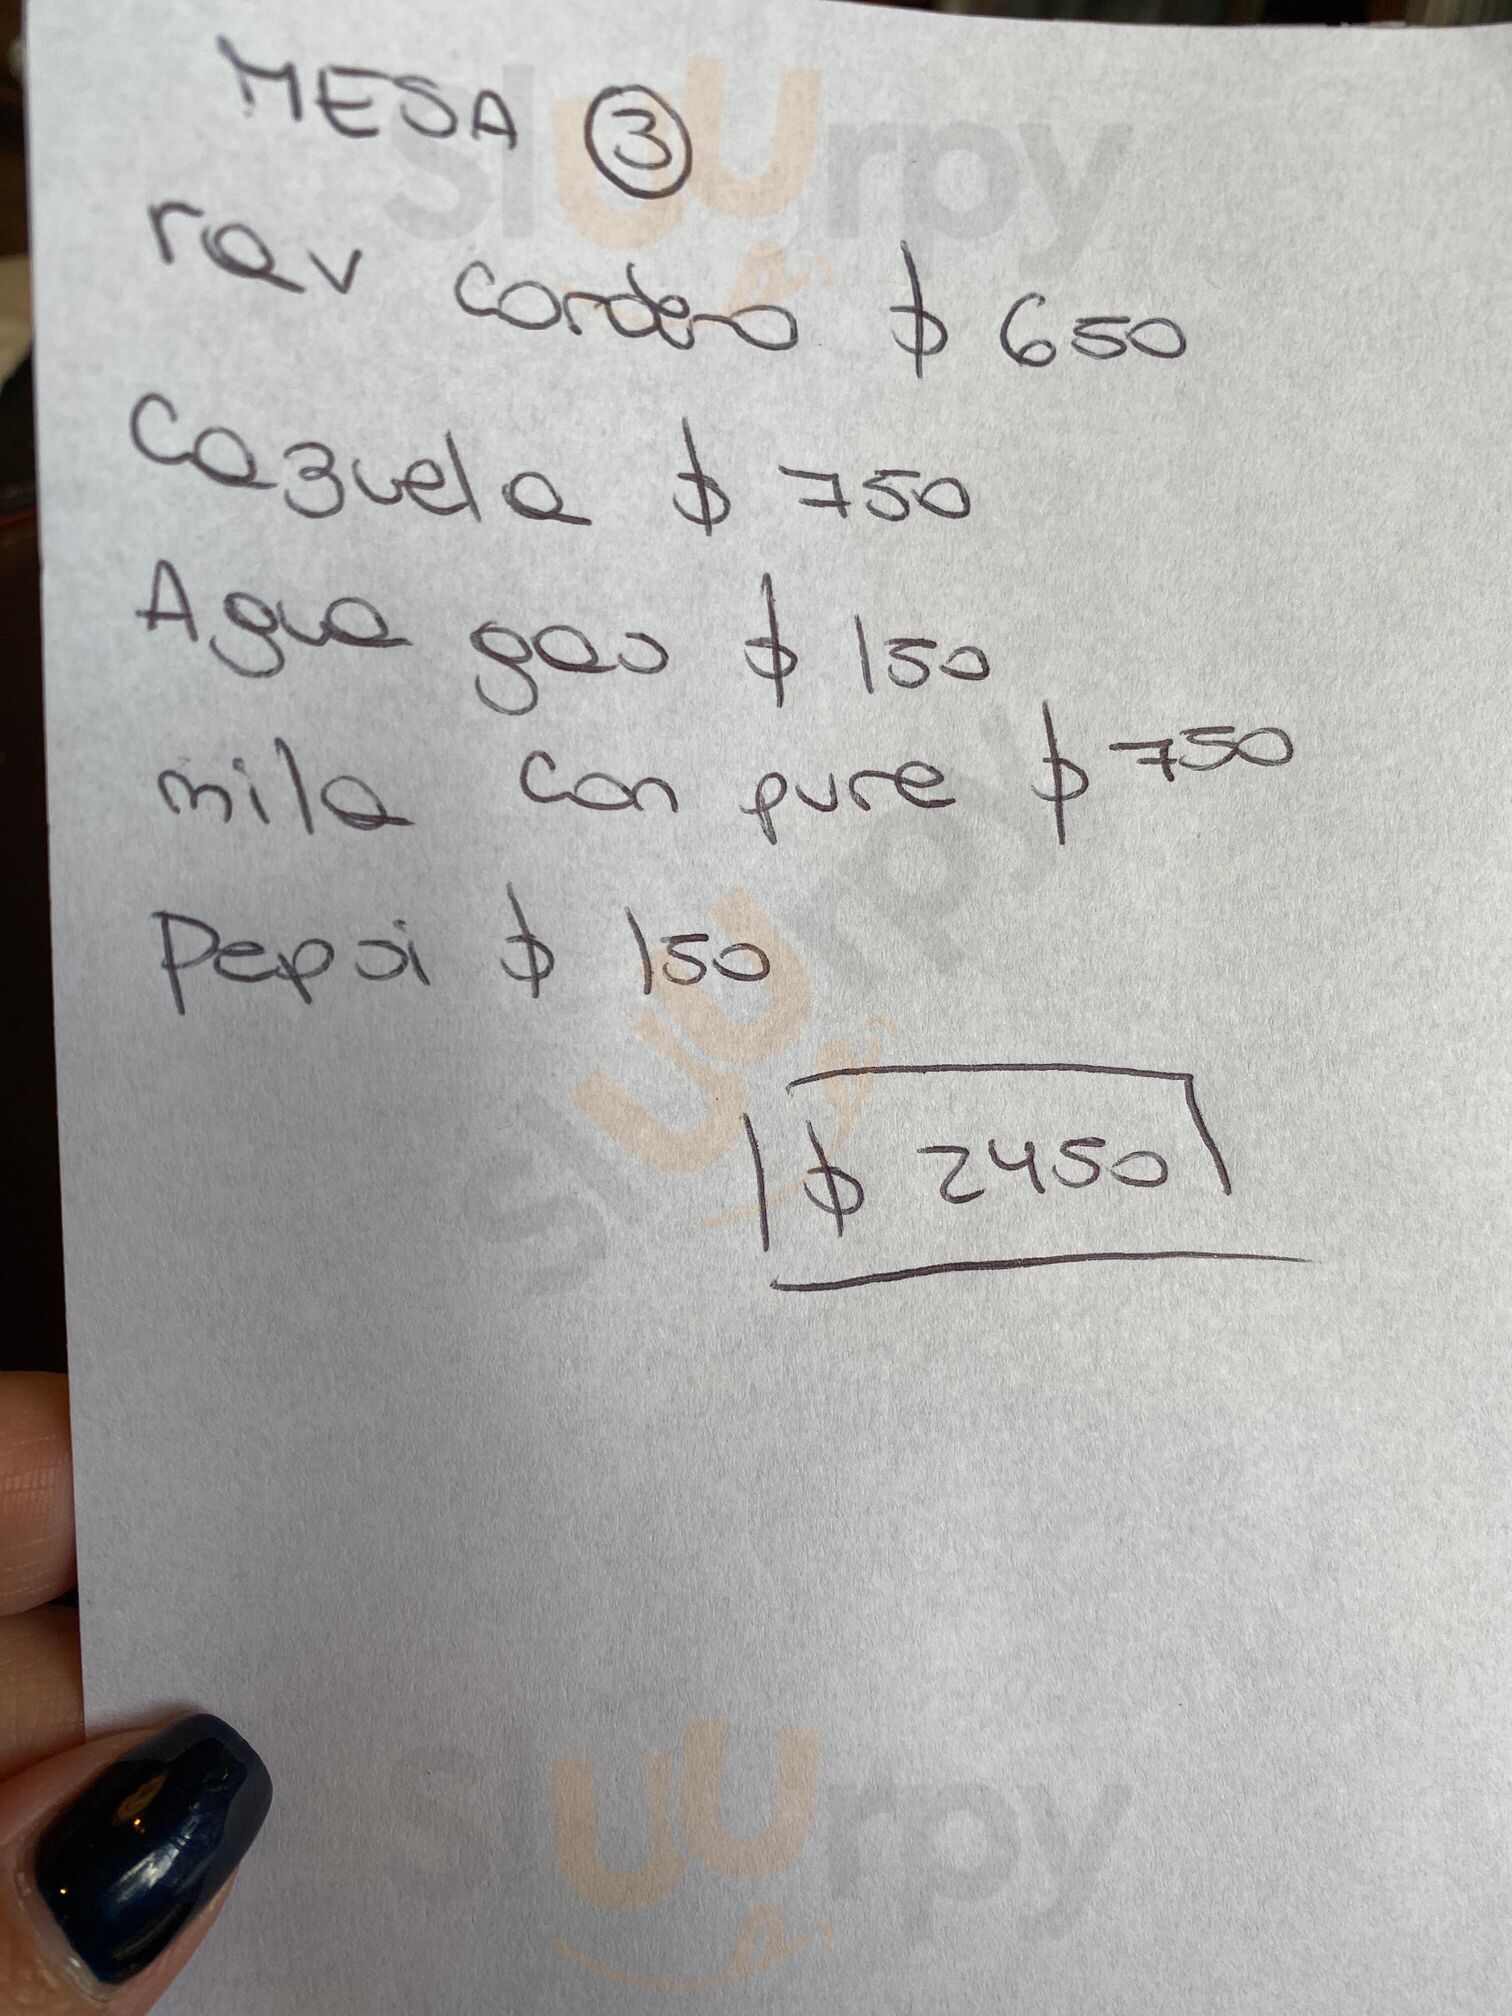 MESA 3
rav cordero $ 650
Cazuela $ 750
Agua gas $ 150
mila con pure $ 750
Pepsi $ 150
$ 2450
sluurpy
sluurpy
sluurpy